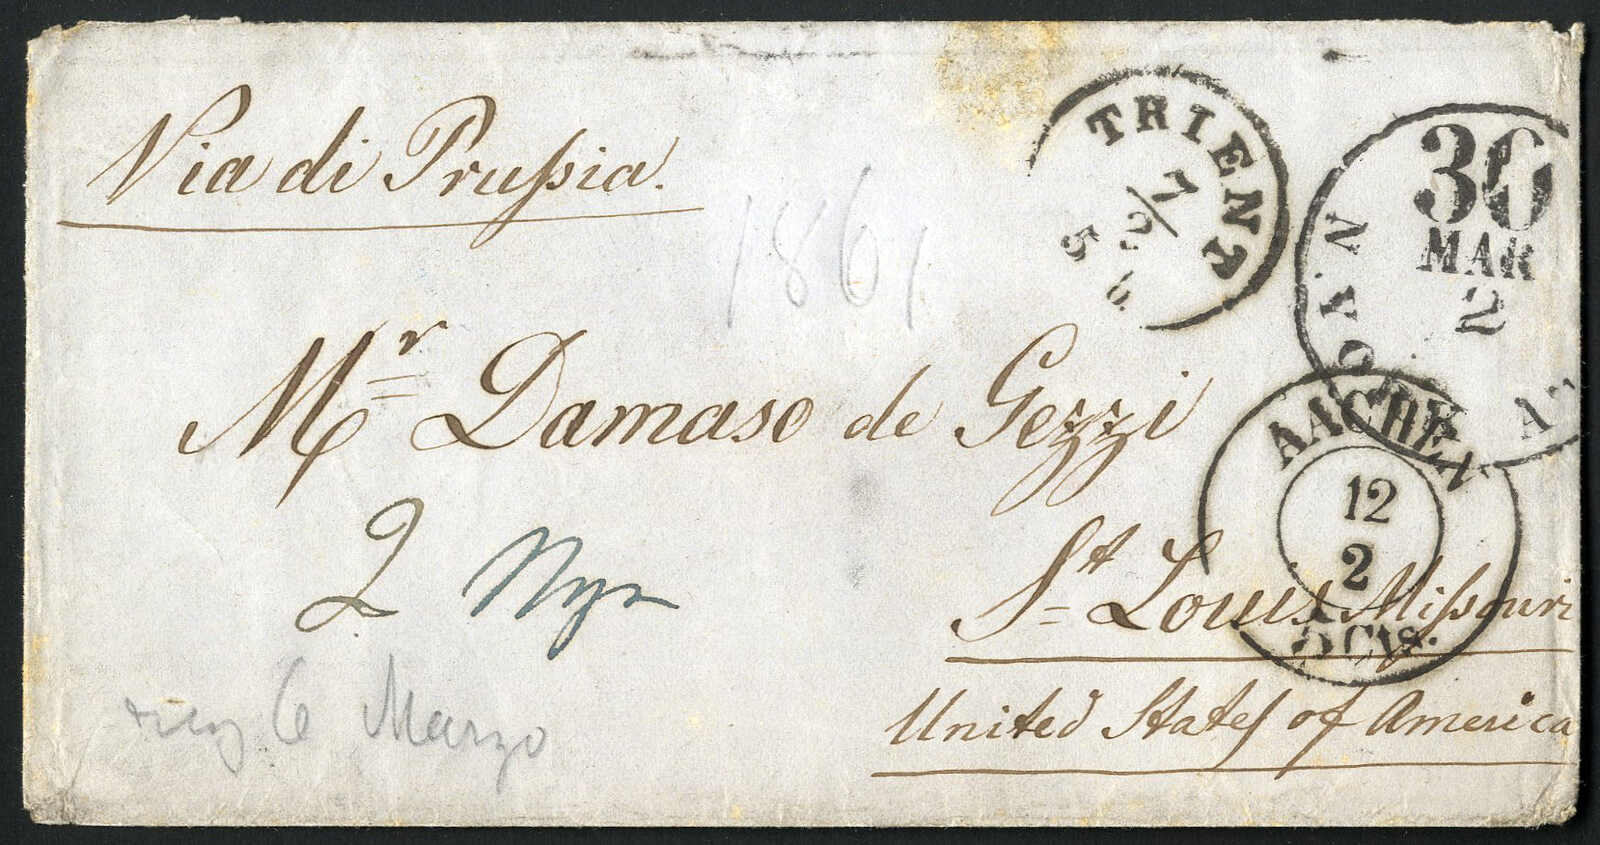 Via di Prussia.
TRIENT
7/2
5
1861
36
MAR
2
Mr Damaso de Gezzi
AACHEN
12
2
5 CTS.
2
St Louis Missouri
United States of America
6 Marzo